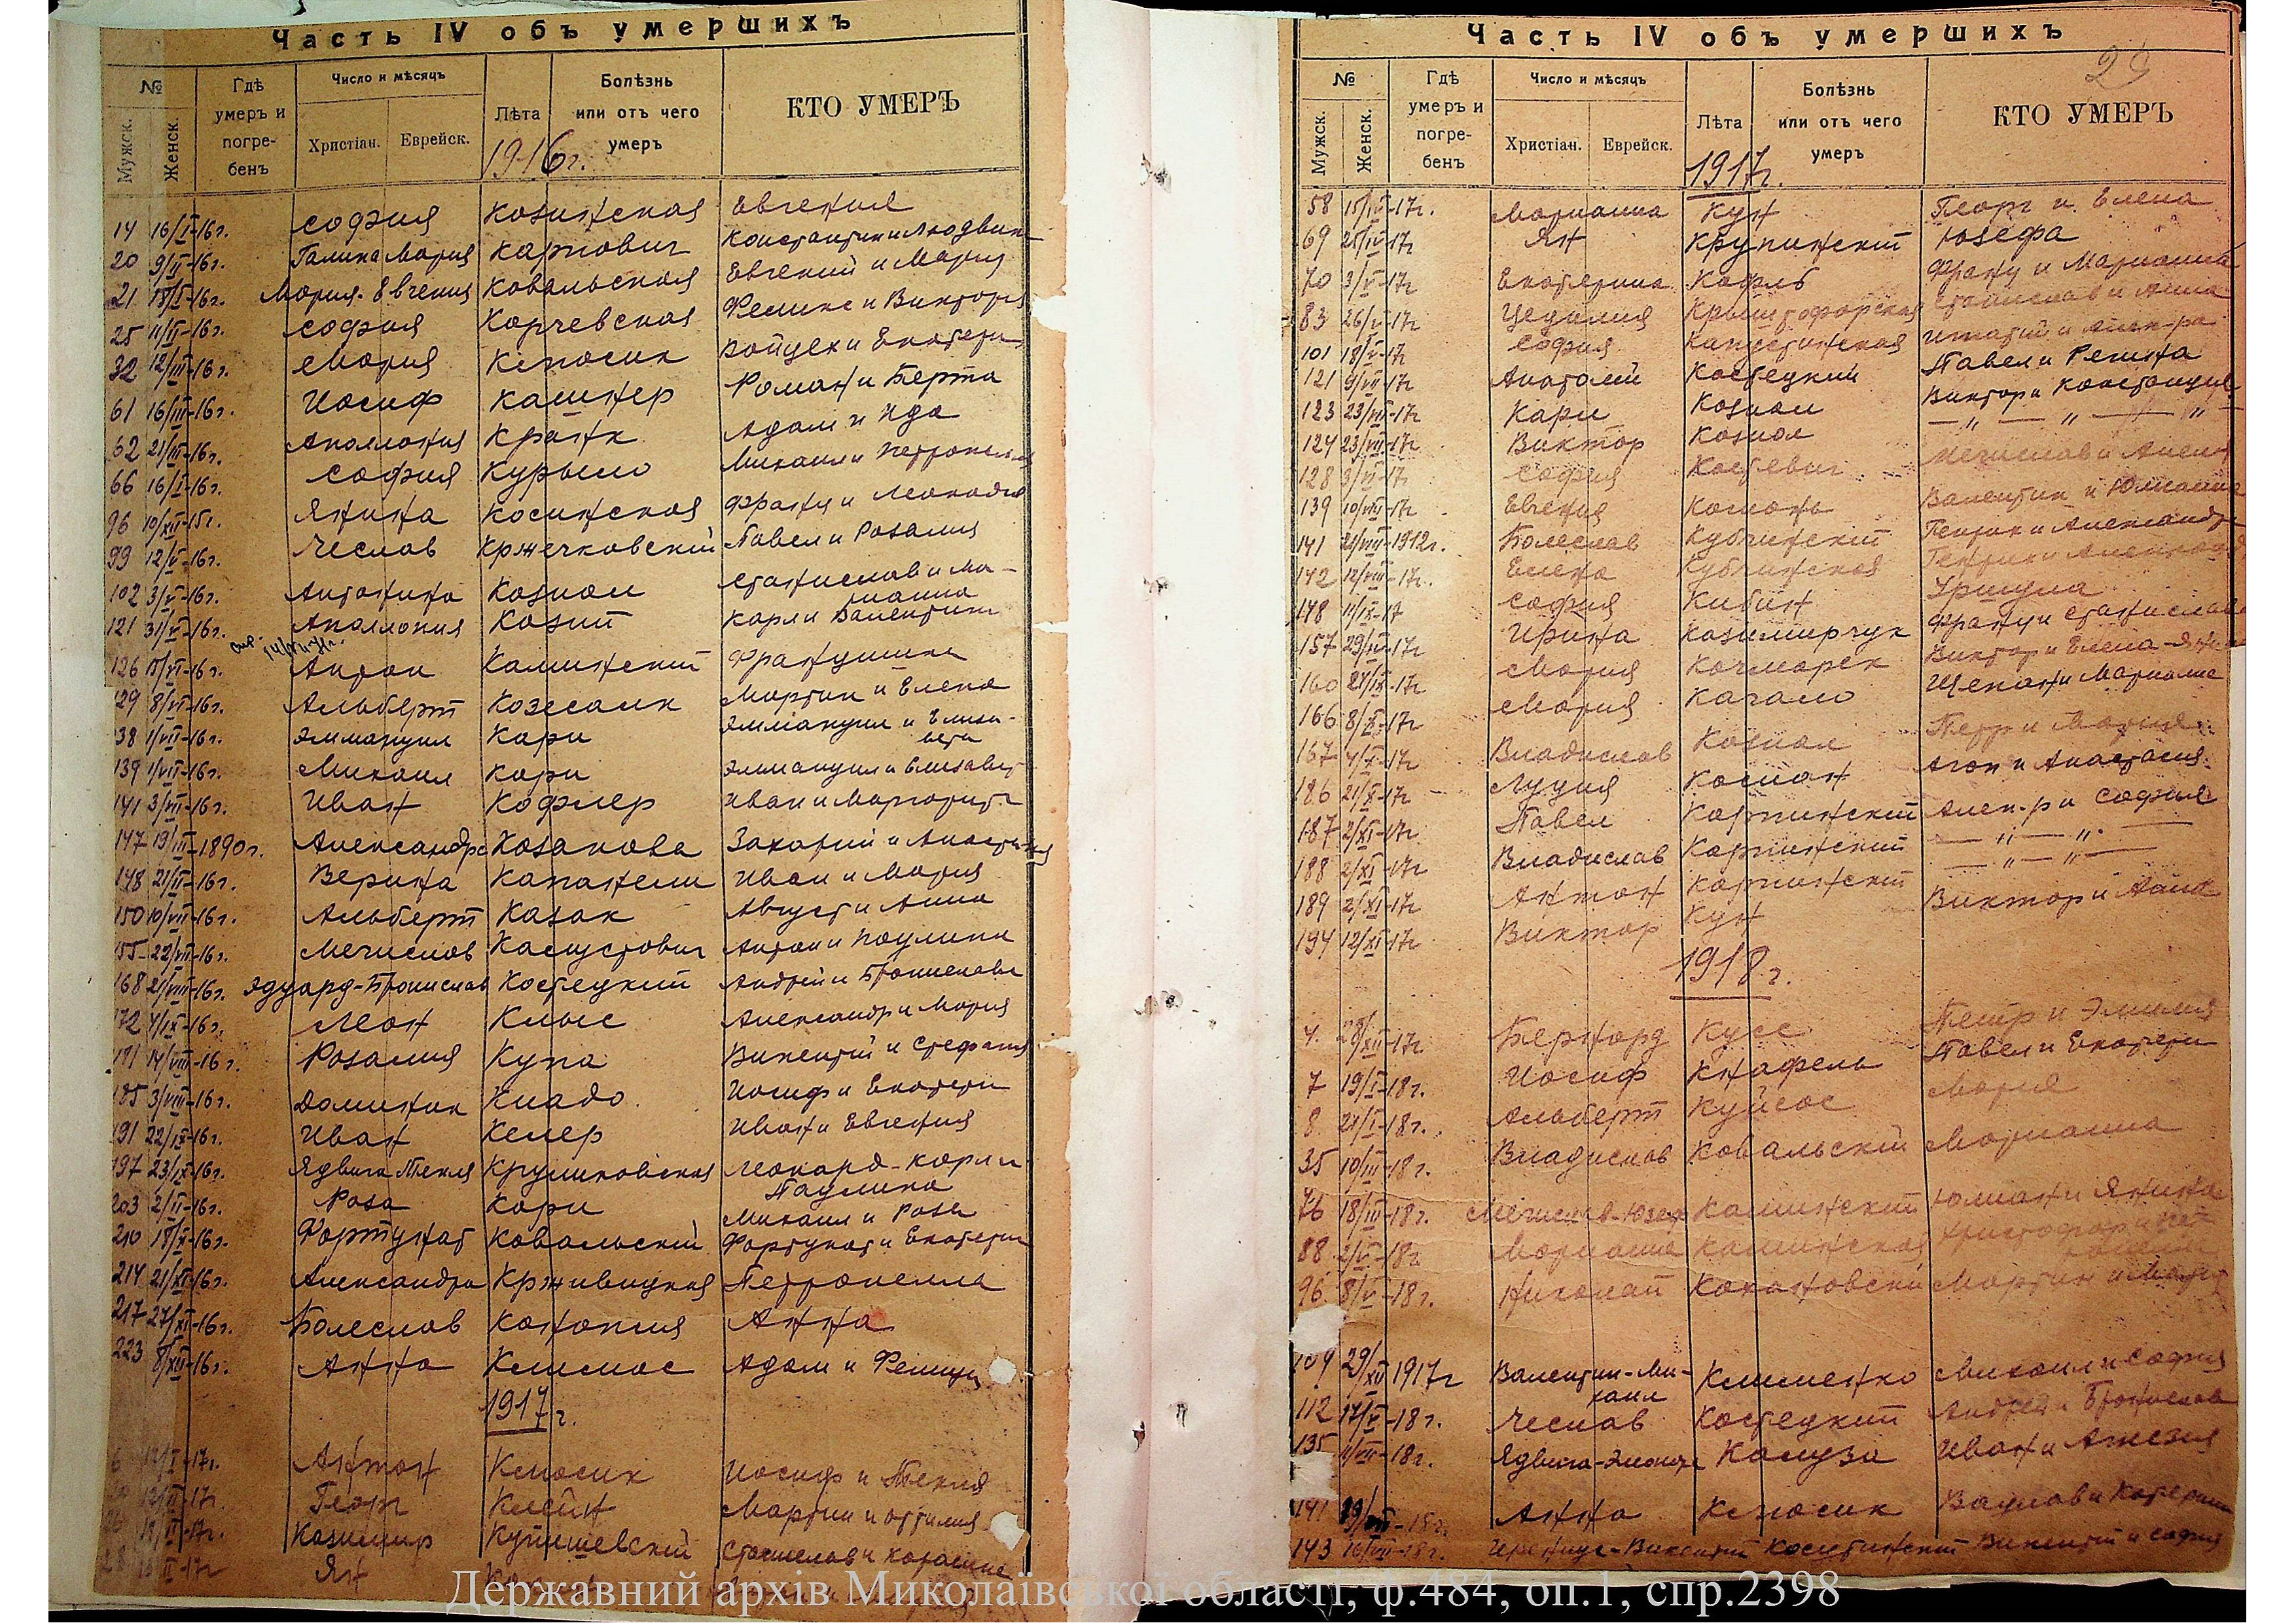 Часть IV объ умершихъ
№
Мужск.
Женск.
Гдѣ умеръ и погре- бенъ
Число и мѣсяцъ
Христіан.
Еврейск.
Лѣта
Болѣзнь или отъ чего умеръ
КТО УМЕРЪ
1916г.
14 16/I-16г. София Козинская Евгения
20 9/II-16г. Галина Мария Карпович Константин и Людвик
21 18/I-16г. Мария-Евгения Ковальская Евгений и Мария
25 11/II-16г. София Корчевская Феликс и Виктория
32 12/III-16г. Мария Клюсик Войцех и Екатери
61 16/III-16г. Иосиф Кашнер Роман и Берта
62 21/III-16г. Аполлония Кранк Адам и Ида
66 16/I-16г. София Курыло Михаил и Петронелла
96 10/XII-15г. Янина Косинская Франц и Леокадия
99 12/V-16г. Чеслав Кржечковский Павел и Розалия
102 3/V-16г. Антонина Козиол Станислав и Ма-
рианна
121 31/V-16г. Аполлония Козит Карл и Валентина
126 15/VI-16г. Антон Калинский Францишка
129 8/VI-16г. Альберт Мартин и Елена
38 1/VII-16г. Эммануил Кари Эммануил и Елиза-
вета
139 1/VII-16г. Михаил Кари Эммануил и Елизавет
141 3/VII-16г. Иван Кофлер Иван и Маргарита
147 19/III-1890г. Александра Козакова Захарий и Анастасия
148 21/II-16г. Верина Капанели Иван и Мария
150 10/VII-16г. Альберт Казак Август и Анна
155 22/VII-16г. Мечислав Касцустович Антон и Паулина
168 21/VIII-16г. Эдуард-Бронислав Костецкий Андрей и Бронислава
172 4/IX-16г. Леон Клыс Александр и Мария
181 14/VIII-16г. Розалия Купа Викентий и Стефания
185 3/VIII-16г. Доминик Киадо Иосиф и Екатери
191 22/IX-16г. Иван Келер Иван и Евгения
197 23/IX-16г. Ядвига Текля Круликовская Леонард-Карл и
Паулина
203 2/II-16г. Роза Кари Михаил и Роза
210 18/X-16г. Фортунат Ковальский Фортунат и Екатери
214 21/XI-16г. Александра Крживицкая Петронелла
217 27/XI-16г. Болеслав Конопля Анна
223 8/XII-16г. Анна Климас Адам и
1917г.
Антон Клюсик Иосиф и Текля
Георг Клейн Мартин и Оттилия
Казимир Купишевский Станислав и Каролина
Ян
Часть IV объ умершихъ
№
Мужск.
Женск.
Гдѣ умеръ и погре- бенъ
Число и мѣсяцъ
Христіан.
Еврейск.
Лѣта
Болѣзнь или отъ чего умеръ
КТО УМЕРЪ
1917г.
58 15/IV-17г. Марианна Кун Георг и Елена
69 25/IV-17г Ян Крупинский Юзефа
70 3/V-17г Екатерина Кофль Франц и Марианна
83 26/V-17г Цецилия Крыштофорская Станислав и Анна
101 18/V-17г София Капустинская Игнатий и Алек-ра
121 9/VII-17г Анатолий Костецкий Павел и Регина
123 23/VII-17г Карл Козиол Виктор и Констанция
124 23/VII-17г Виктор Козиол — „ — „ — „ —
128 3/VI-17г София Костевич Мечислав и
139 10/VIII-17г Евгения Комонь Валентин и Юлианна
141 21/VIII-1912г. Болеслав Кубчинский Генрих и Александра
142 12/VIII-17г. Елена Кубчинская Генрих и Александр
148 11/IX-17 София Кибин Уршула
157 29/IX-17г Ирина Казимирчук Франц и Станислава
160 21/IX-17г Мария Качмарек Виктор и Елена-Янина
166 8/X-17г Мария Качало Щепан и Марианна
167 4/X-17г Владислав Козиол Петр и Мария
186 21/X-17г Луция Косман Агон и Анастасия
187 2/XI-17г Павел Карпинский Алек-р и София
188 2/XI-17г Владислав Карпинский — „ — „ —
189 2/XI-17г Антон Карпинский — „ — „ —
194 12/XI-17г Виктор Кун Виктор и Анна
1918г.
4. 28/XII-17г Бернард Кусс Петр и Эмилия
7 19/I-18г. Иосиф Кнафель Павел и Екатери
8 21/I-18г. Альберт Куйсос Мария
35 10/III-18г. Владислав Ковальский Марианна
76 18/III-18г. Мечислав-Юзеф Калинский Юлиан и Янина
88 2/V-18г Марианна Калинская Христофор и
96 8/V-18г. Николай Кохановский Мартин и Мария
109 29/XII 1917г Валентин-Ми-
хаил Клименко Михаил и София
112 17/V-18г. Чеслав Костецкий Андрей и Бронислав
135 4/VII-18г. Ядвига-Элеонора Калуза Иван и
141 Анна Клюсик Вацлав и Катерина
143 16/VII-18г. Иреници-Викентий Косцинский Викентий и София
Державний архів Миколаївської області, ф.484, оп.1, спр.2398